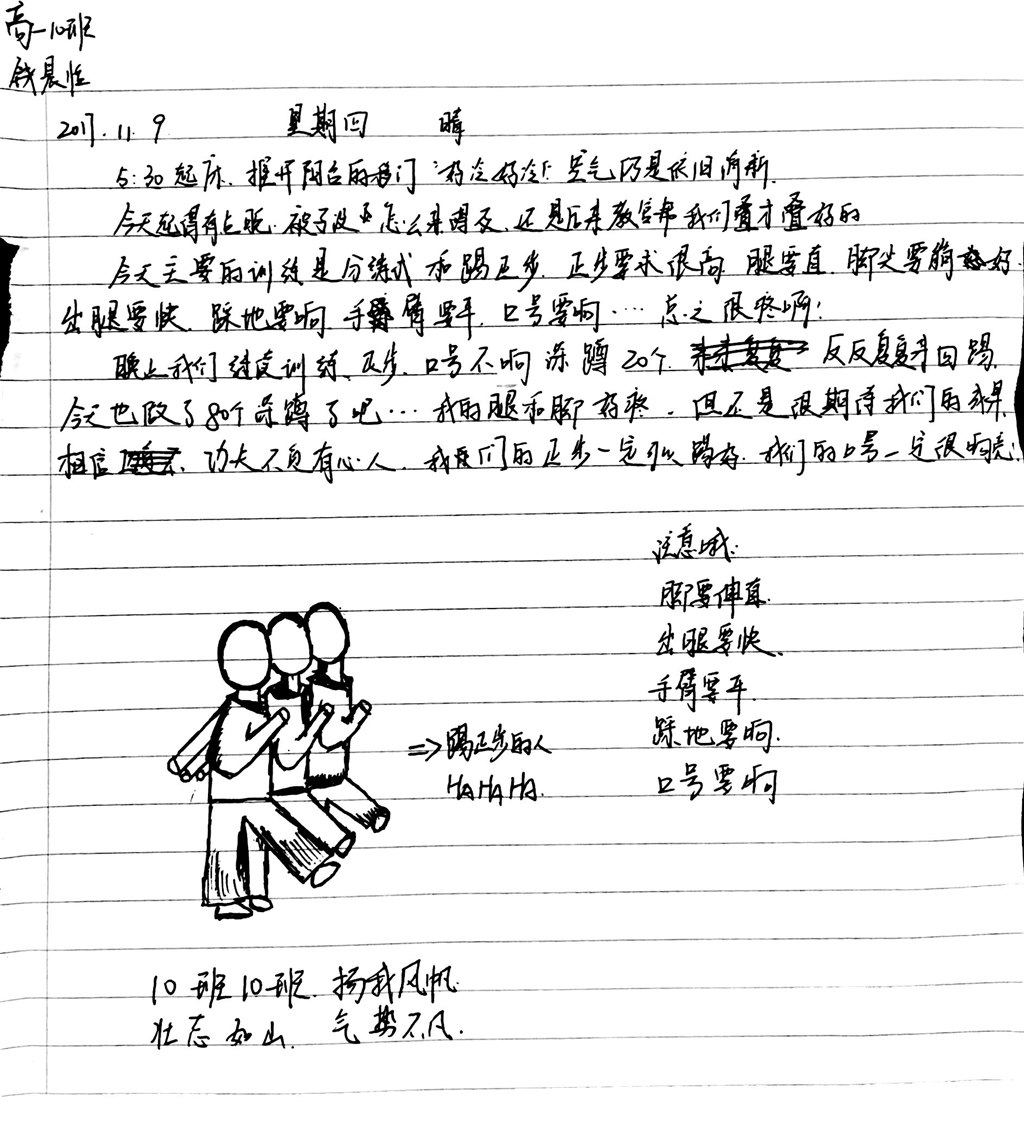 高一10班
钱晨恺
2017.11.9 星期四 晴
5:30起床.推开阳台的移门"好冷好冷!"空气仍是依旧清新.
今天起得有点晚.被子没怎么来得及.还是后来教官帮我们叠才叠好的
今天主要的训练是分练式和踢正步.正步要求很高 腿要直.脚尖要绷好.
出腿要快.踩地要响 手臂要平.口号要响……总之很疼啊!
晚上我们继续训练.正步.口号不响深蹲20个.反反复复来回踢.
今天也做了80个深蹲了吧…我的腿和脚好疼.但还是很期待我们的成果
相信.功夫不负有心人.我们的正步一定可以踢好.我们的口号一定很响亮!
注意哦:
脚要伸直.
出腿要快.
手臂要平.
踩地要响.
口号要响
=>踢正步的人
HAHAHA.
10班10班.扬我风帆.
壮志如山.气势不凡.